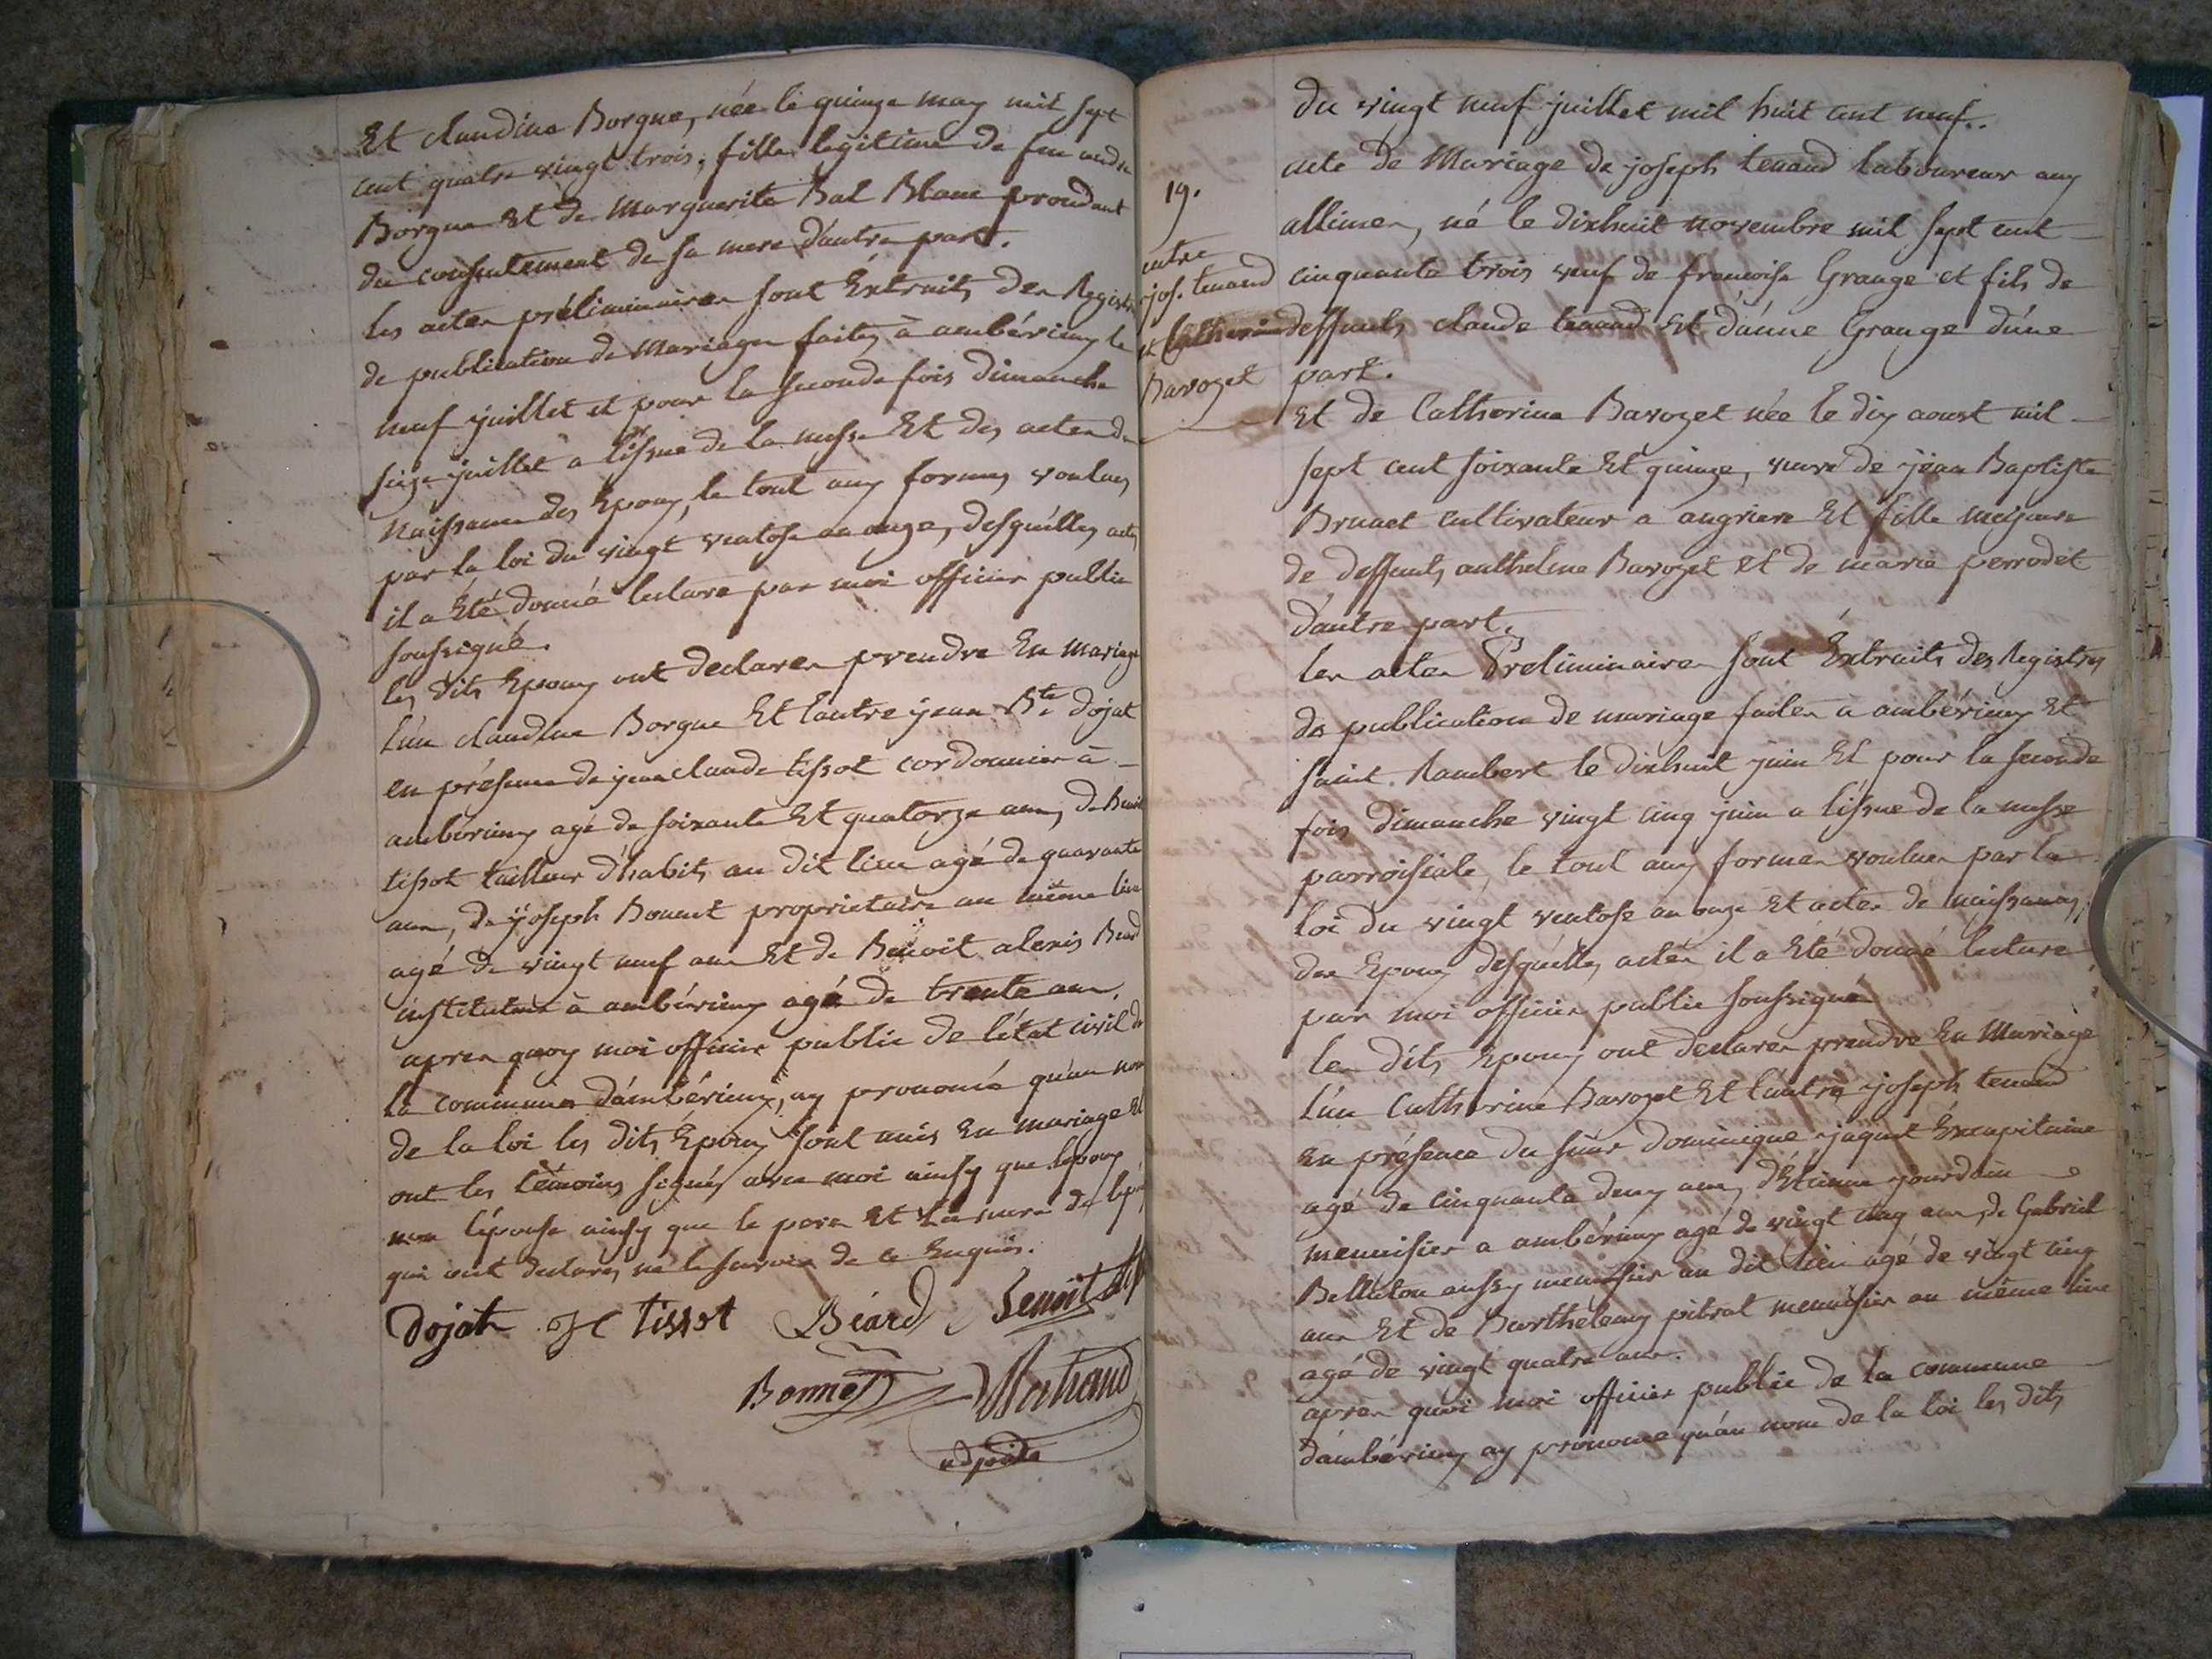 Et claudine Borgne, née le quinze may mil sept
cent quatre vingt trois, fille legitime de feu andré
Borgne et de Marguerite Bal Blanc procedant
du consentement de sa mere d'autre part.
les actes préliminaires sont Extraits des Registres
de publication de Mariages faites à ambérieux le
neuf juillet et pour la seconde fois dimanche
seize juillet à l'issue de la messe Et des actes de
Naissance des Epoux, le tout aux formes voulues
par la loi du vingt ventose an onze, desquelles actes
il a Eté donné lecture par moi officier public
soussigné.
les dits Epoux ont declarer prendre En mariage
l'un claudine Borgne Et l'autre jean Bte dojat
en présence de jean claude tissot cordonnier à
ambérieux agé de soixante Et quatorze ans, de Benoit
tissot tailleur d'habits au dit lieu agé de quarante
ans, de joseph Bonnet proprietaire au même lieu
agé de vingt neuf ans Et de Benoit alexis Beard
instituteur à ambérieux agé de trente ans.
apres quoy moi officier public de l'état civil de
la commune d'ambérieux, ay prononcé qu'au nom
de la loi les dits Epoux sont unis En mariage Et
ont les témoins signés avec moi ainsy que l'epoux
non l'épouse ainsy que le pere Et la mere de
qui ont declarés ne le savoir de ce Enquis.
Dojat JC tissot Béard Benoit
Bonnet
adjoint
du vingt neuf juillet mil huit cent neuf.
acte de Mariage de joseph tenand laboureur aux
19.
entre
jos. tenand
et Catherine
Bavozet
allimes, né le dixhuit novembre mil sept cent
cinquante trois veuf de francoise Grange et fils de
deffunts claude tenand et d'anne Grange d'une
part.
Et de Catherine Bavozet née le dix aoust mil
sept cent soixante Et quinze, veuve de jean Baptiste
Brunet cultivateur a angriere Et fille majeure
de deffunts anthelme Bavozet et de marie perrodet
d'autre part.
les actes Preliminaires sont Extraits des Registres
de publication de mariage faites à ambérieux Et
saint Rambert le dixhuit juin Et pour la seconde
fois dimanche vingt cinq juin a l'issue de la messe
parroissiale, le tout aux formes voulues par la
loi du vingt ventose an onze Et actes de naissances
des Epoux desquelles actes il a Eté donné lecture
par moi officier public soussigné
les dits Epoux ont declarer prendre En Mariage
l'un Catherine Bavozet Et l'autre joseph tenand
En présence du sieur dominique jaquet Excapitaine
agé de cinquante deux ans, d'Etienne jourdain
menuisier a ambérieux agé de vingt cinq ans, de Gabriel
Bellaton aussy menuisier au dit lieu agé de vingt cinq
ans Et de Barthelemy pitrat menuisier au même lieu
agé de vingt quatre ans.
apres quoi moi officier public de la commune
d'ambérieux ay prononcé qu'au nom de la loi les dits